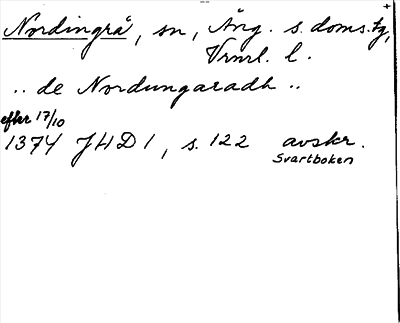 Nordingrå, sn, Ång. s. doms. tg,
Vrml. l.
.. de Nordungaradh ..
efter 17/10
1374 JHD 1, s. 122 avskr.
Svartboken